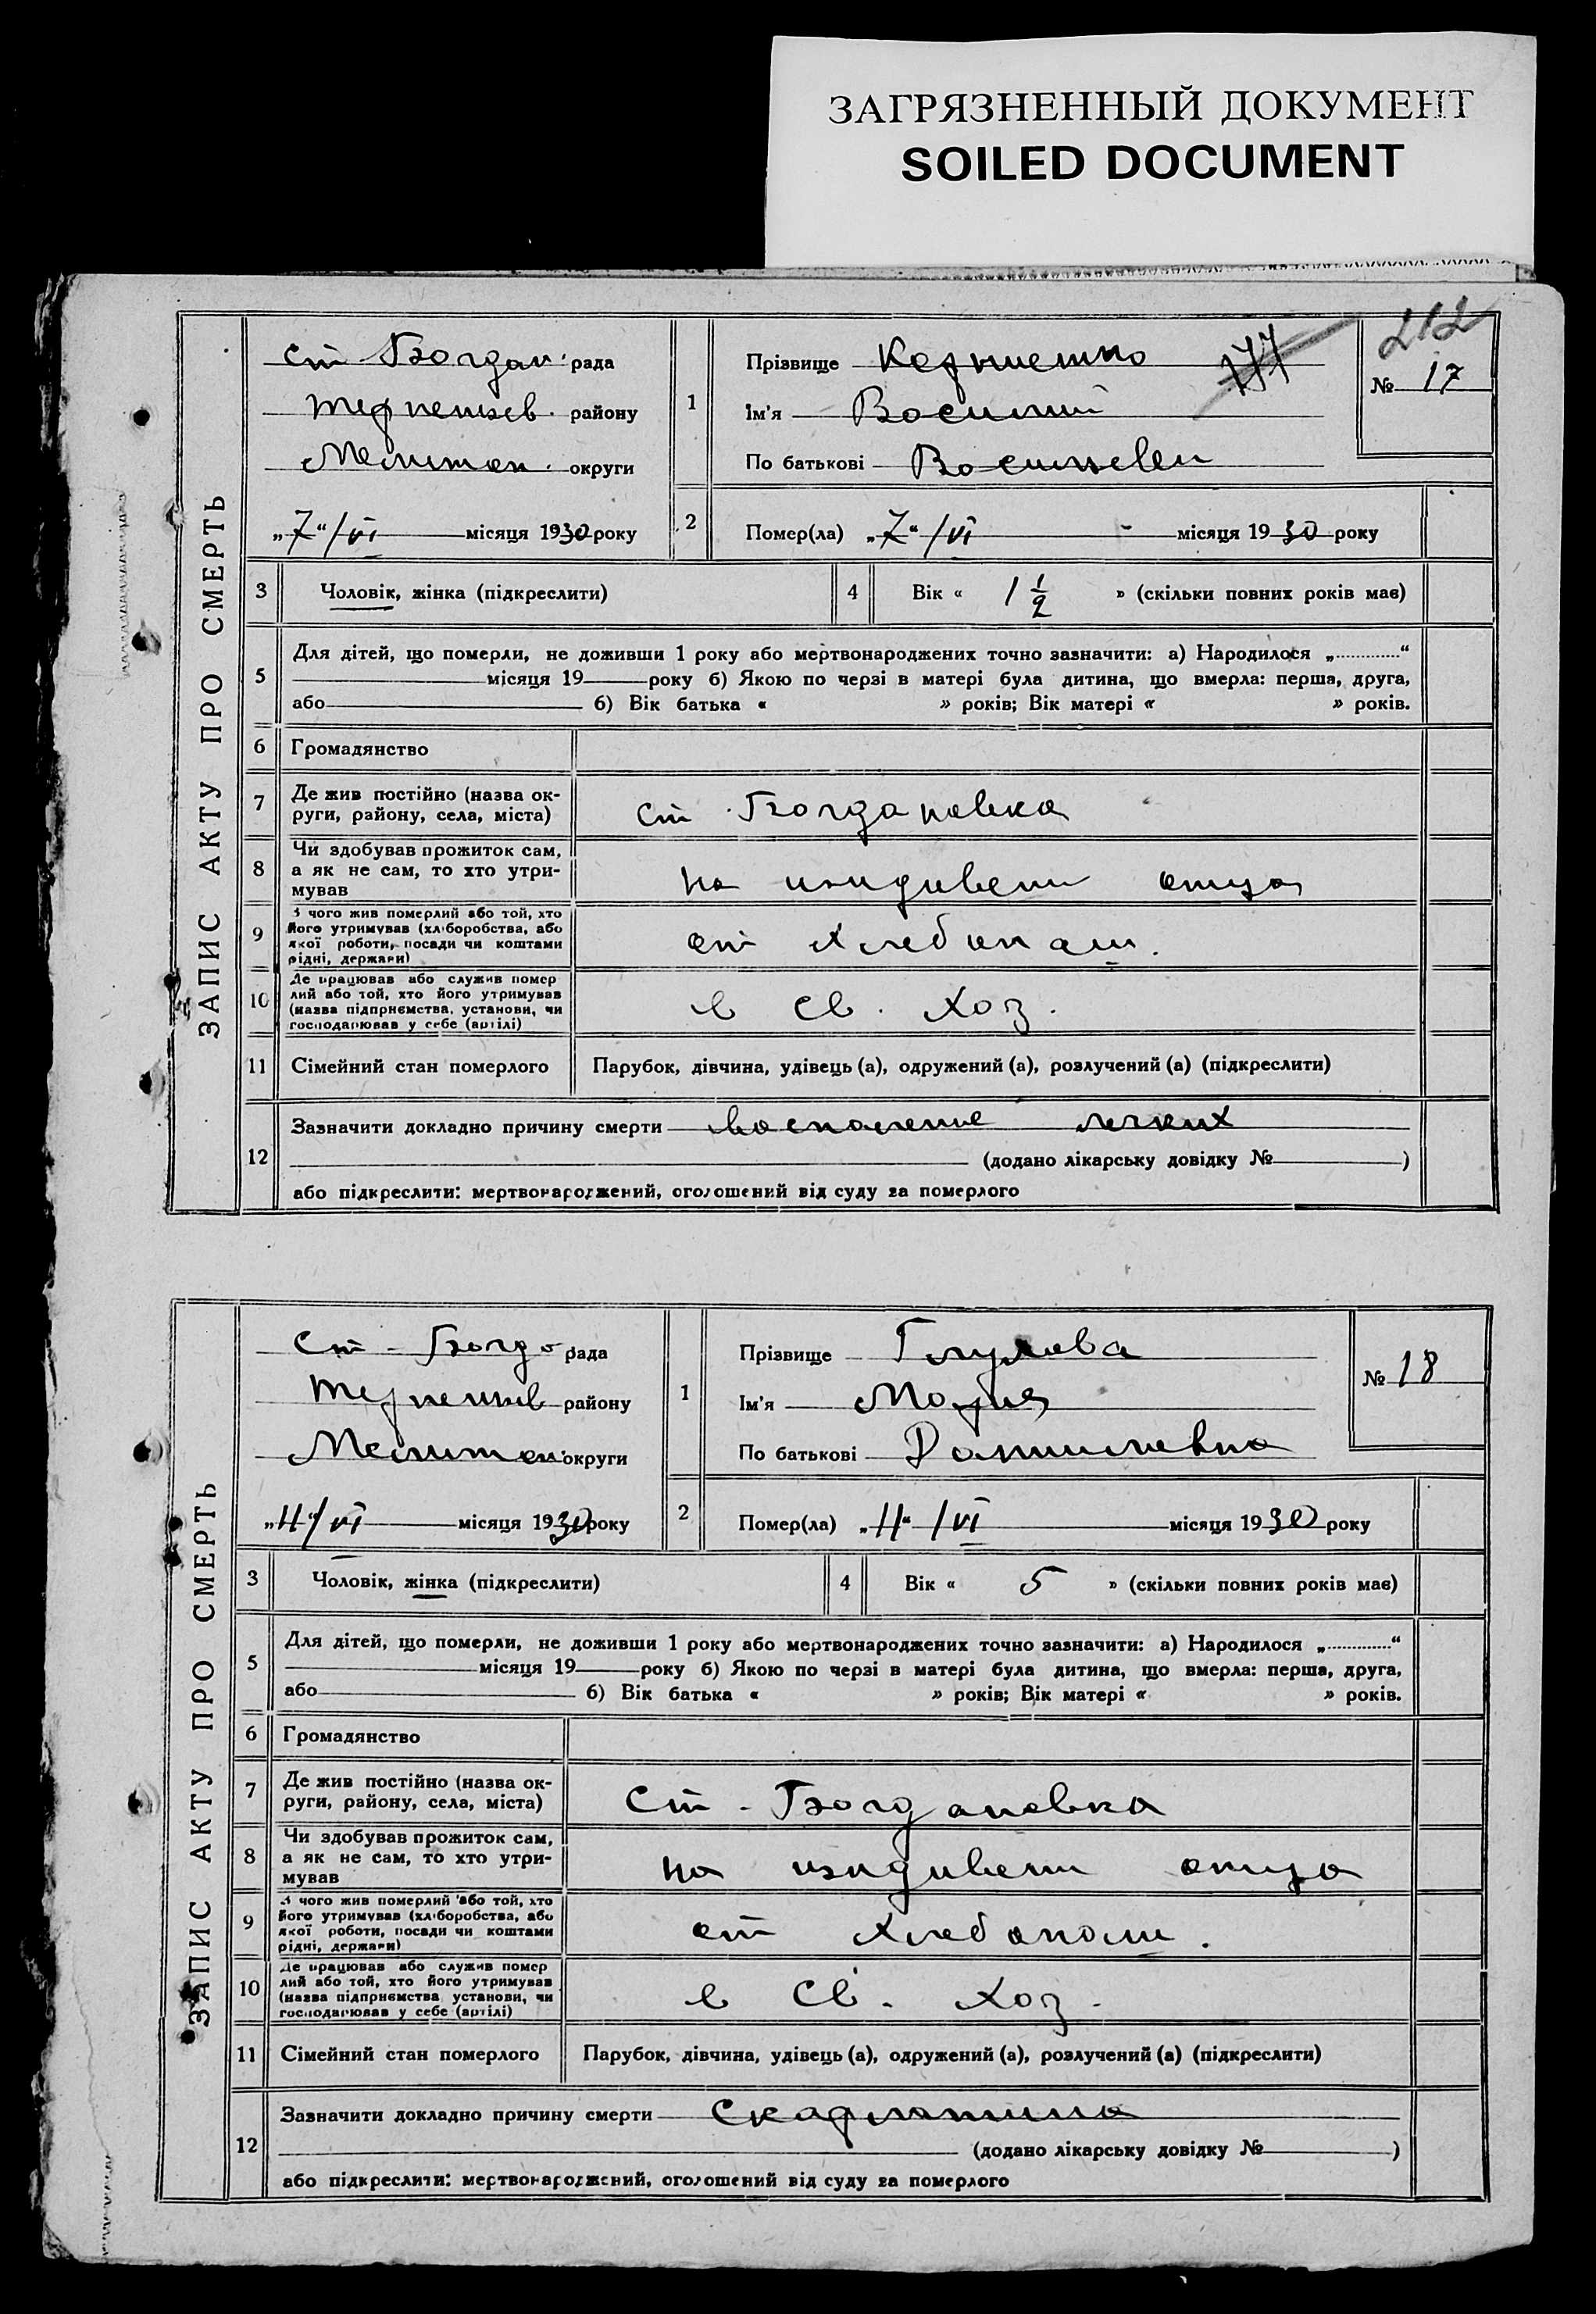 ЗАГРЯЗНЕННЫЙ ДОКУМЕНТ
SOILED DOCUMENT
212
ЗАПИС АКТУ ПРО СМЕРТЬ
ст Богдан. рада
Терпеньев. району
Мелитоп. округи
„7“/VI місяця 1930 року
1
Прізвище 177
Ім'я Василий
По батькові
№ 17
2 Помер(ла) „7“/VI місяця 1930 року
3 Чоловік, жінка (підкреслити)
4 Вік « 1 1/2 » (скільки повних років має)
5 Для дітей, що померли, не доживши 1 року або мертвонароджених точно зазначити: а) Народилося „............“
місяця 19 року б) Якою по черзі в матері була дитина, що вмерла: перша, друга,
або б) Вік батька « » років; Вік матері « » років.
6 Громадянство
7 Де жив постійно (назва ок-
руги, району, села, міста)
ст. Богдановка
8 Чи здобував прожиток сам,
а як не сам, то хто утри-
мував
на иждивени отца
9 З чого жив померлий або той, хто
його утримував (хліборобства, або
якої роботи, посади чи коштами
рідні, держави)
от хлебопаш.
10 Де працював або служив помер
лий або той, хто його утримував
(назва підприємства, установи, чи
господарював у себе (артілі)
в св. хоз.
11 Сімейний стан померлого Парубок, дівчина, удівець (а), одружений (а), розлучений (а) (підкреслити)
12 Зазначити докладно причину смерти воспаление легких
(додано лікарську довідку № )
або підкреслити: мертвонароджений, оголошений від суду за померлого
ЗАПИС АКТУ ПРО СМЕРТЬ
Ст - Богд рада
Терпеньев району
Мелитоп. округи
„11“/VI місяця 1930 року
1
Прізвище
Ім'я Мария
По батькові Даниловна
№ 18
2 Помер(ла) „11“/VI місяця 1930 року
3 Чоловік, жінка (підкреслити)
4 Вік « 5 » (скільки повних років має)
5 Для дітей, що померли, не доживши 1 року або мертвонароджених точно зазначити: а) Народилося „............“
місяця 19 року б) Якою по черзі в матері була дитина, що вмерла: перша, друга,
або б) Вік батька « » років; Вік матері « » років.
6 Громадянство
7 Де жив постійно (назва ок-
руги, району, села, міста)
Ст - Богдановка
8 Чи здобував прожиток сам,
а як не сам, то хто утри-
мував
на иждивени отца
9 З чого жив померлий або той, хто
його утримував (хліборобства, або
якої роботи, посади чи коштами
рідні, держави)
от хлебопаш.
10 Де працював або служив помер
лий або той, хто його утримував
(назва підприємства, установи, чи
господарював у себе (артілі)
в св. хоз.
11 Сімейний стан померлого Парубок, дівчина, удівець (а), одружений (а), розлучений (а) (підкреслити)
12 Зазначити докладно причину смерти Скарлатина
(додано лікарську довідку № )
або підкреслити: мертвонароджений, оголошений від суду за померлого